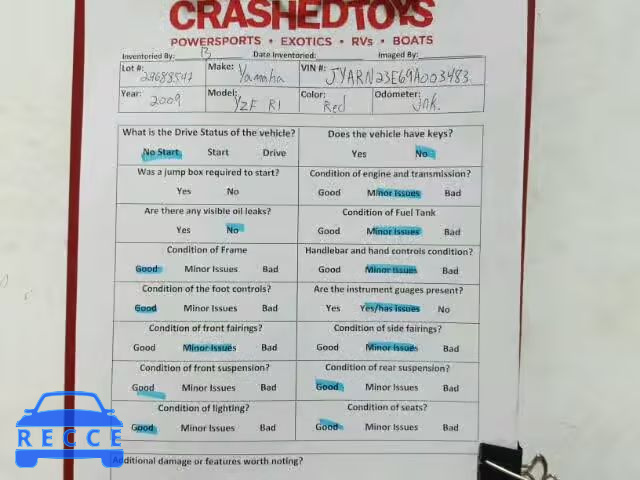 CRASHEDTOYS
POWERSPORTS • EXOTICS • RVs • BOATS
Inventoried By: B Date Inventoried: Imaged By:
Lot #: Make: Yamaha VIN #: JYARN23E69A003483
Year: 2009 Model: YZF R1 Color: Red Odometer: Unk.
What is the Drive Status of the vehicle? Does the vehicle have keys?
No Start Start Drive Yes No
Was a jump box required to start? Condition of engine and transmission?
Yes No Good Minor Issues Bad
Are there any visible oil leaks? Condition of Fuel Tank
Yes No Good Minor Issues Bad
Condition of Frame Handlebar and hand controls condition?
Good Minor Issues Bad Good Minor Issues Bad
Condition of the foot controls? Are the instrument guages present?
Good Minor Issues Bad Yes Yes/has issues No
Condition of front fairings? Condition of side fairings?
Good Minor Issues Bad Good Minor Issues Bad
Condition of front suspension? Condition of rear suspension?
Good Minor Issues Bad Good Minor Issues Bad
Condition of lighting? Condition of seats?
Good Minor Issues Bad Good Minor Issues Bad
Additional damage or features worth noting?
RECCE